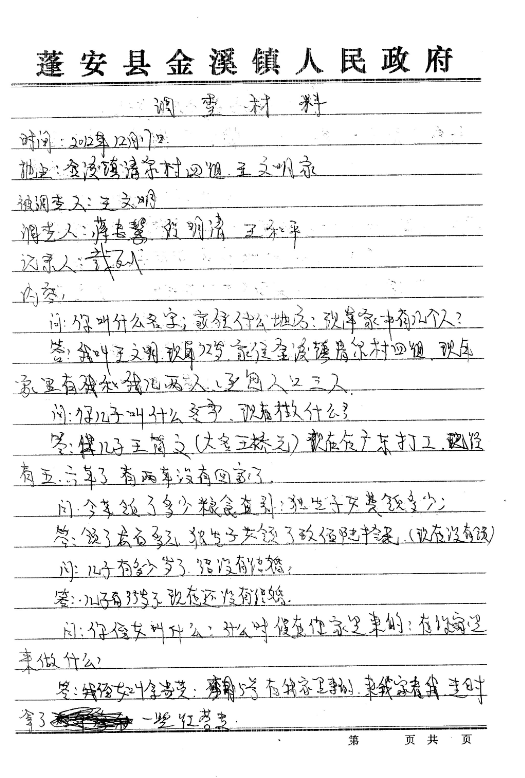 蓬安县金溪镇人民政府
调查材料
时间:2012年12月17日
地点:金溪镇清尔村四组 王文明家
被调查人:王文明
调查人:蒋 明清 王和平
记录人:
内容:
问:你叫什么名字;家住什么地方;现在家中有几个人?
答:我叫王文明.现年72岁 家住金溪镇清尔村四组.现在
家里有我和我儿两人.人口三人
问:你儿子叫什么名字.现在做什么?
答:我儿子王简文(大名王桥元)现在在广东打工.已经
有五.六年了 有两年没有回家了.
问:今年领了多少粮食直补;独生子女费领多少;
答:领了 百多元.独生子女领了 佰 拾元.(现在没有领)
问:儿子有多少岁了 结没有结婚;
答:儿子有35岁了 现在还没有结婚.
问:你侄女叫什么;什么时候在你家里来的;在你家里
来做什么;
答:我侄女叫 .5号在我家里来的.来我家看我.走时
拿了 一些红苕走.
第 页共 页